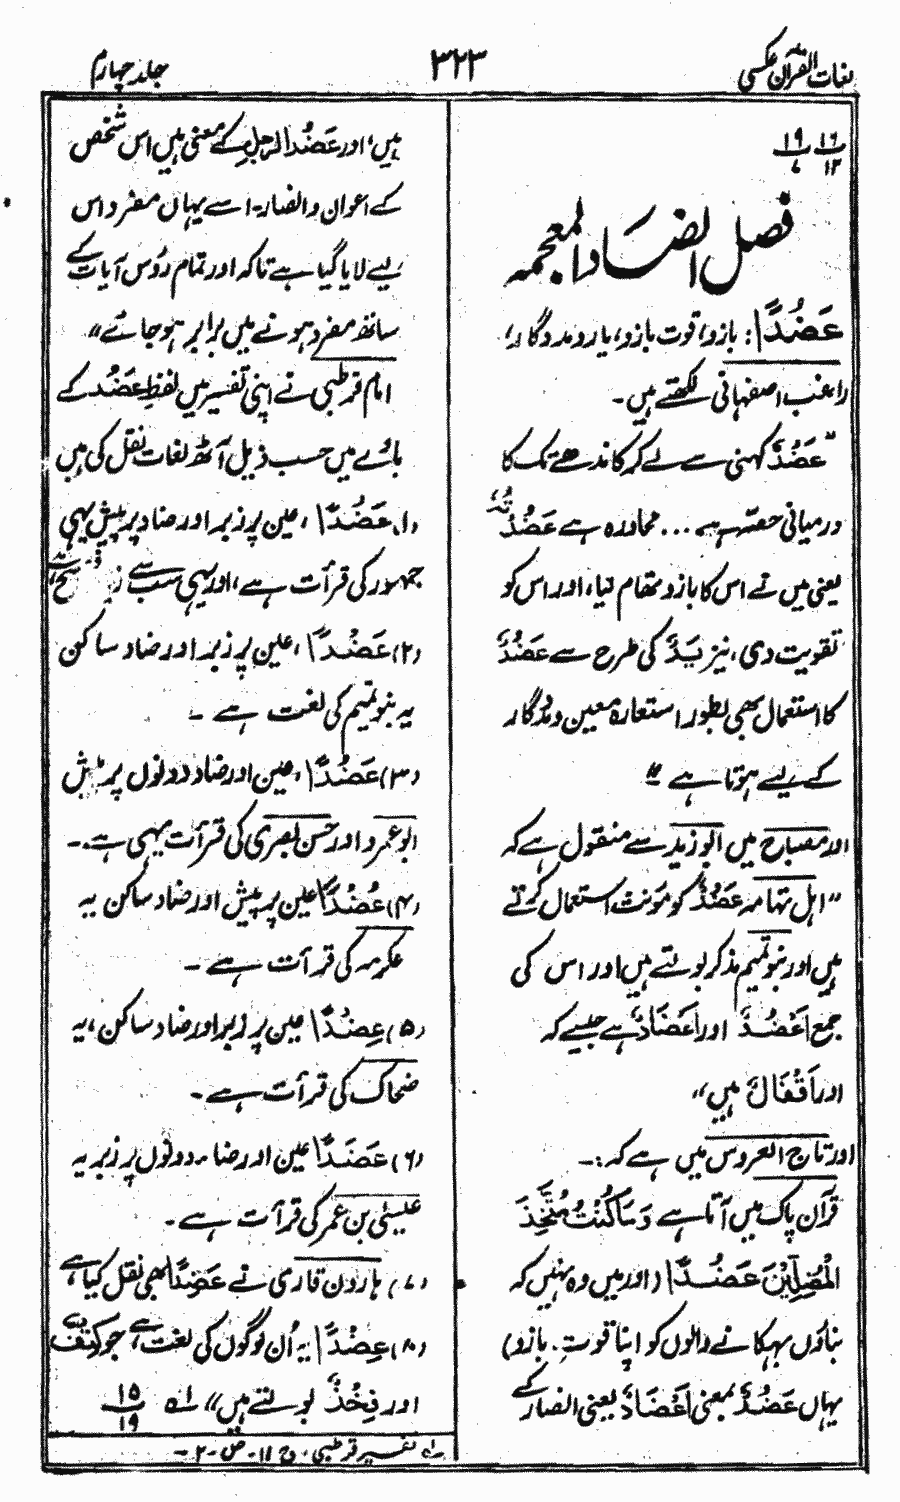 لغات القرآن عکسی
۳۲۳
جلد چہارم
۱۶ ۱۹
۱۲ ۷
فصل الضاد المعجمہ
عَضُدًا: بازو، قوت بازو، یار و مددگار،
راغب اصفہانی لکھتے ہیں۔
”عَضُدٌ کہنی سے لے کر کاندھے تک کا
درمیانی حصہ ہے... محاورہ ہے عَضُدْتُہٗ
یعنی میں نے اس کا بازو تھام لیا، اور اس کو
تقویت دی، نیز یَدٌ کی طرح سے عَضُدٌ
کا استعمال بھی بطور استعارہ معین و مددگار
کے لیے ہوتا ہے“
المصباح میں ابوزید سے منقول ہے کہ
”اہل تہامہ عَضُدٌ کو مؤنث استعمال کرتے
ہیں اور بنو تمیم مذکر بولتے ہیں اور اس کی
جمع اَعْضُدٌ اور اَعْضَادٌ ہے جیسے کہ
اور اَقْفَالٌ ہیں“
اور تاج العروس میں ہے کہ:۔
قرآن پاک میں آتا ہے وَمَا کُنْتُ مُتَّخِذَ
الْمُضِلِّیْنَ عَضُدًا (اور میں وہ نہیں کہ
بناؤں بہکانے والوں کو اپنا قوتِ بازو)
یہاں عَضُدٌ بمعنی اَعْضَادٌ یعنی انصار کے
ہیں، اور عَضُدُ الرجلِ کے معنی ہیں اس شخص
کے اعوان و انصار۔ اسے یہاں مفرد اس
لیے لایا گیا ہے تاکہ اور تمام رؤس آیات کے
ساتھ مفرد ہونے میں برابر ہو جائے“
امام قرطبی نے اپنی تفسیر میں لفظِ عَضُد کے
بارے میں حسب ذیل آٹھ لغات نقل کی ہیں
(۱) عَضُدًا، عین پر زبر اور ضاد پر پیش یہی
جمہور کی قرأت ہے، اور یہی سب سے
(۲) عَضْدًا، عین پر زبر اور ضاد ساکن
یہ بنو تمیم کی لغت ہے۔
(۳) عُضُدًا، عین اور ضاد دونوں پر پیش
ابوعمرو اور حسن بصری کی قرأت یہی ہے۔
(۴) عُضْدًا عین پر پیش اور ضاد ساکن یہ
عکرمہ کی قرأت ہے۔
(۵) عِضْدًا عین پر زبر اور ضاد ساکن، یہ
ضحاک کی قرأت ہے۔
(۶) عَضَدًا عین اور ضاد دونوں پر زبر یہ
عیسیٰ بن عمر کی قرأت ہے۔
(۷) ہارون قاری نے عَضِدًا بھی نقل کیا ہے
(۸) عِضْدًا یہ اُن لوگوں کی لغت ہے جو کِتْفٌ
اور فِخْذٌ بولتے ہیں“
۱۵
۱۹
تفسیر قرطبی، ج ۱۱۔ ص ۲۔